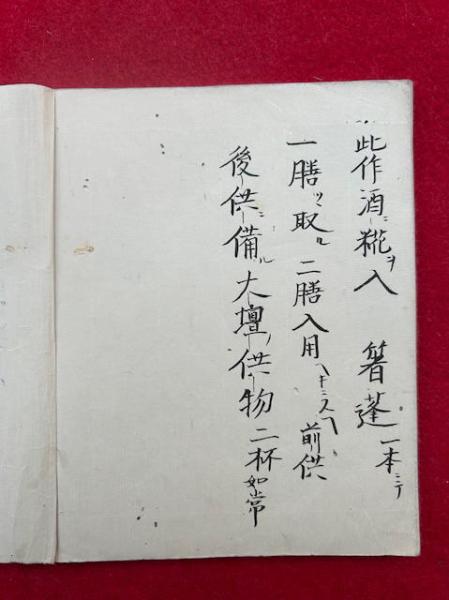 此作酒ニ糀ヲ入　箸蓬一本ニテ
一膳ツヽ取ル二膳入用　前供
後供ニ備ル大壇ノ供物二杯如常